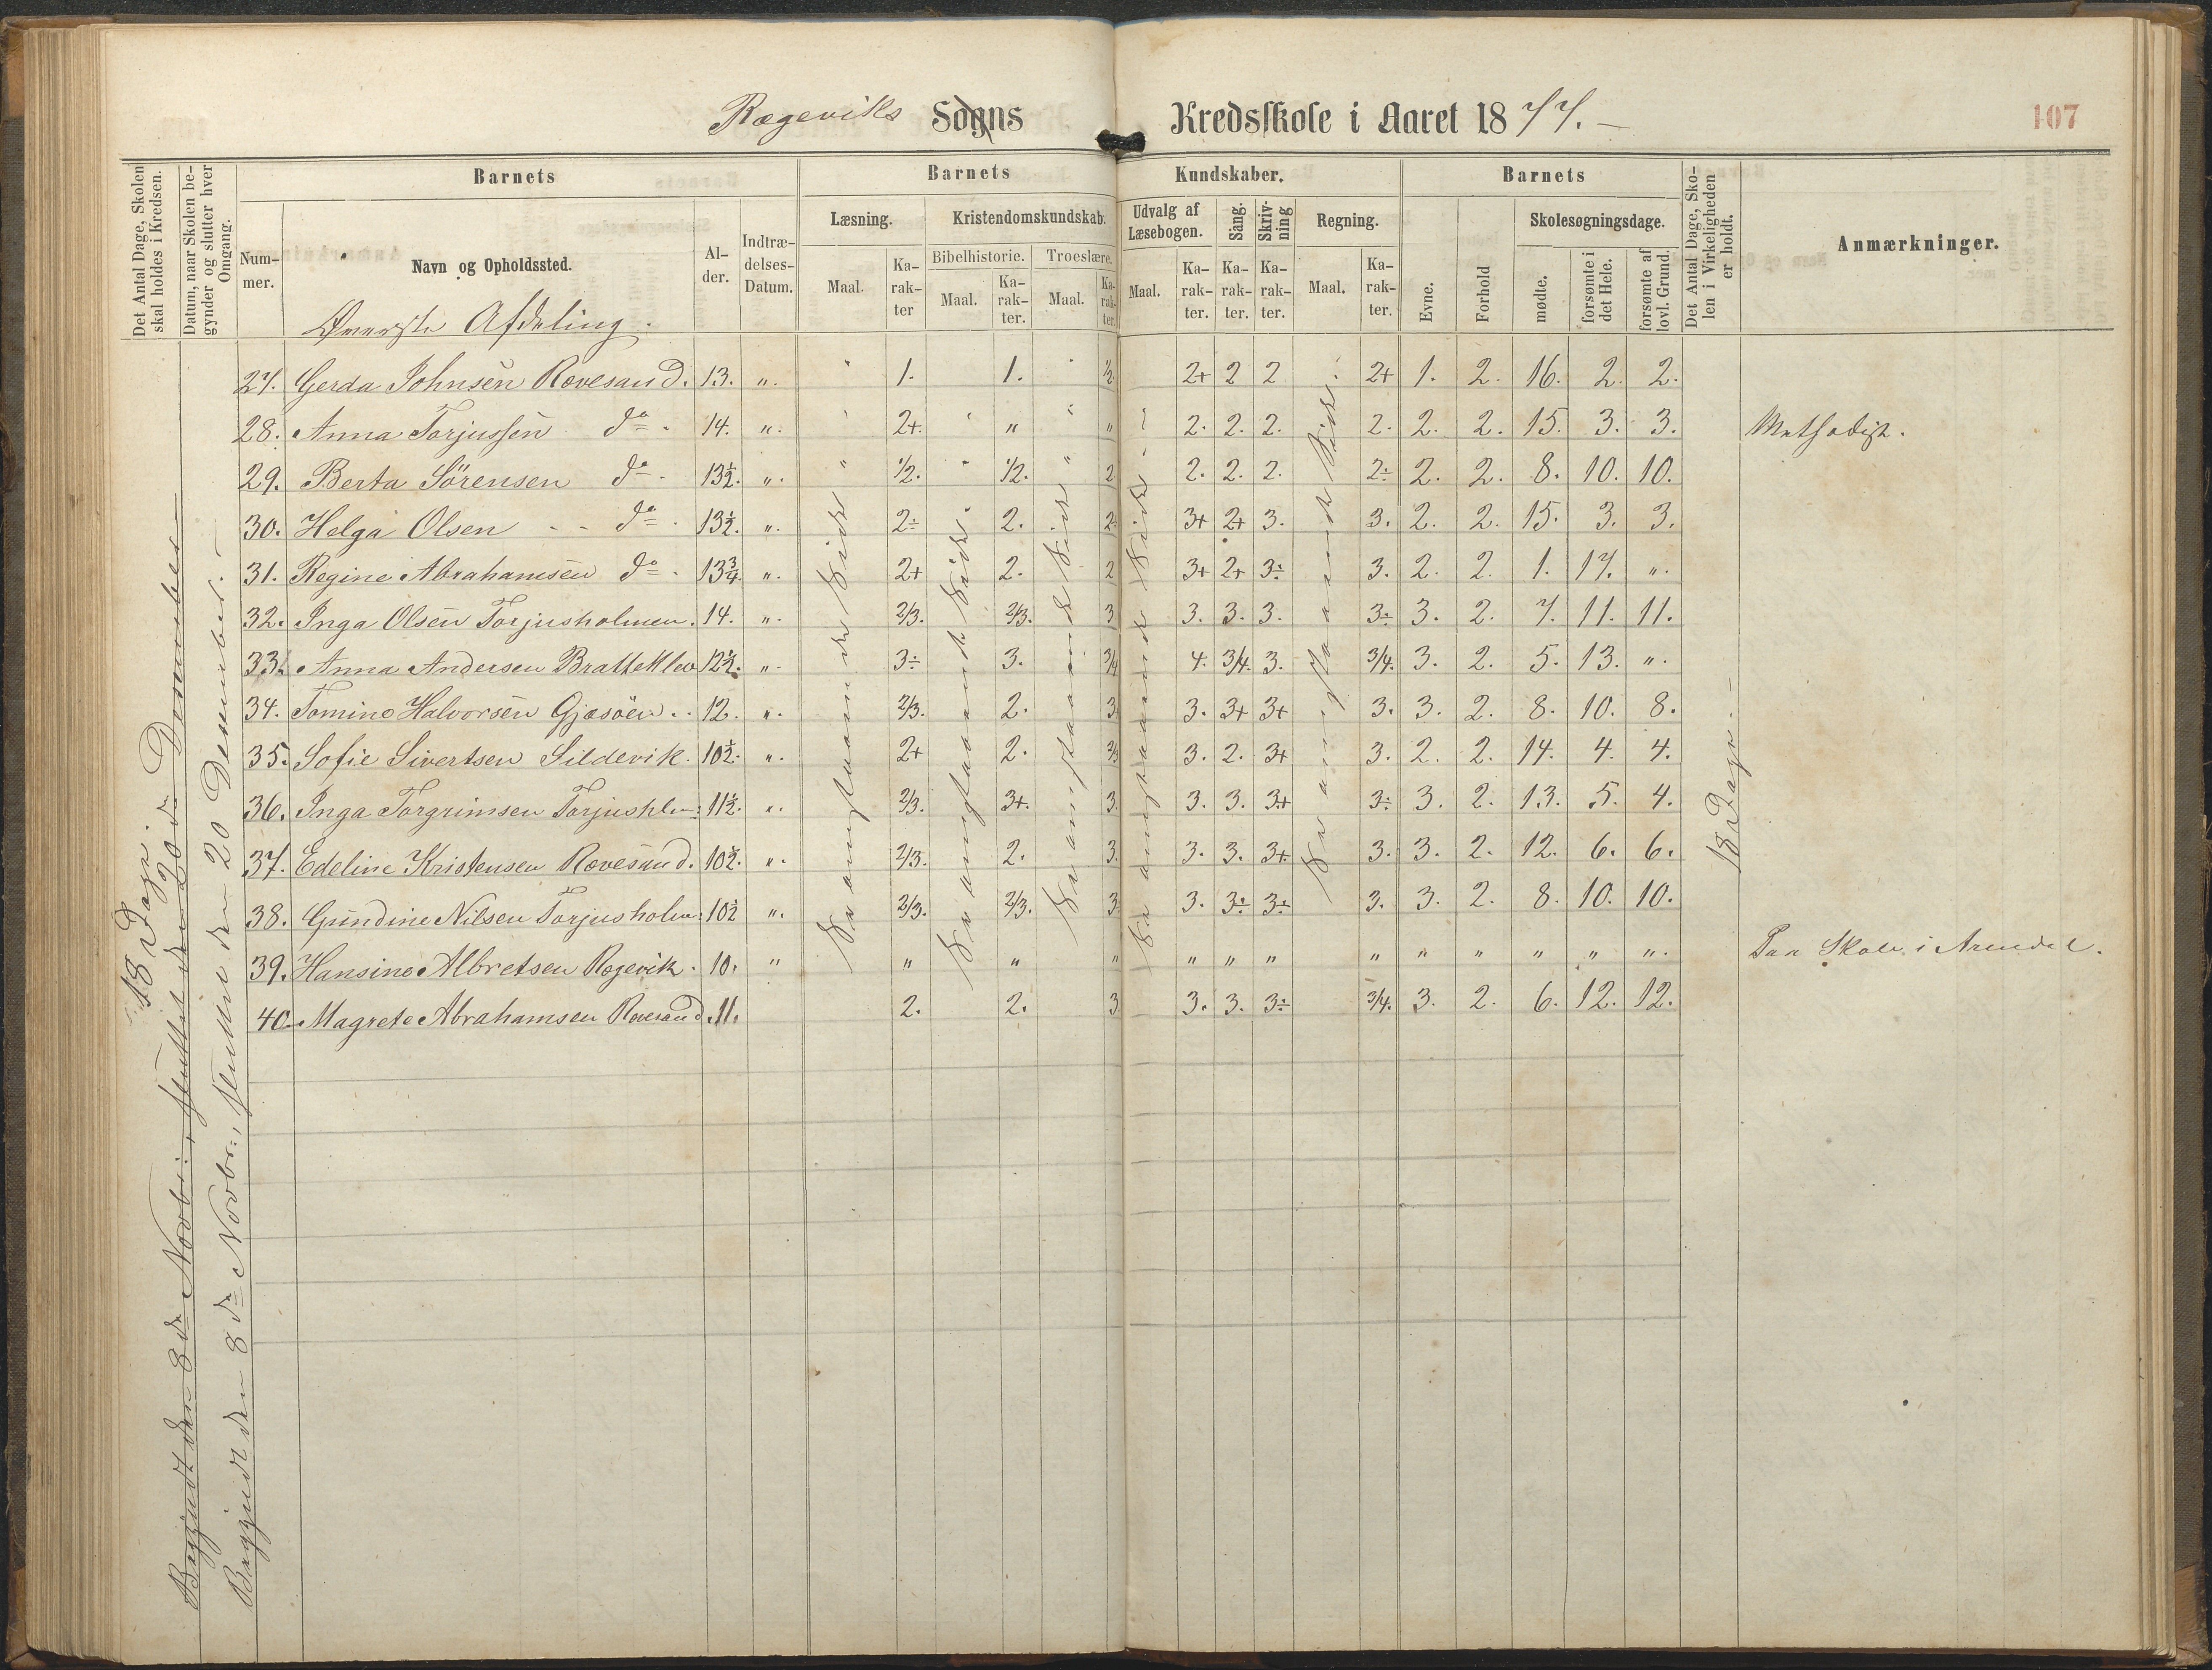 Rægeviks Sogns Kredsskole i Aaret 1877. –
107
Det Antal Dage, Skolen skal holdes i Kredsen.
Datum, naar Skolen begynder og slutter hver Omgang.
Barnets
Barnets
Kundskaber.
Barnets
Det Antal Dage, Skolen i Virkeligheden er holdt.
Anmærkninger.
Nummer.
Navn og Opholdssted.
Alder.
Indtrædelses-Datum.
Læsning.
Kristendomskundskab.
Udvalg af Læsebogen.
Sang.
Skrivning
Regning.
Evne.
Forhold
Skolesøgningsdage.
Bibelhistorie.
Troeslære.
Maal.
Karakter
Maal.
Karakter.
Maal.
Karakter.
Maal.
Karakter.
Karakter.
Karakter.
Maal.
Karakter.
mødte.
forsømte i det Hele.
forsømte af lovl. Grund.
Øverste Afdeling.
27. Gerda Johnsen Rævesand. 13. „. 1. 1. 1/2 2+ 2 2 2+ 1. 2. 16. 2. 2.
28. Anna Torjussen do. 14. „. 2+. „ „ 2. 2. 2. 2. 2. 2. 15. 3. 3.
29. Berta Sörensen do. 13½. „. 1/2. 1/2. 2 2. 2. 2. 2÷ 2. 2. 8. 10. 10.
30. Helga Olsen - - do. 13½. „. 2÷ 2. 2. 3+ 2+ 3. 3. 2. 2. 15. 3. 3.
31. Regine Abrahamsen do. 13¾. „. 2+ 2. 2 3+ 2+ 3÷ 3. 2. 2. 1. 17. „.
32. Inga Olsen Torjusholmen. 14. „. 2/3. 2/3. 3 3. 3. 3. 3÷ 3. 2. 7. 11. 11.
33. Anna Andersen Bratteklev 12½. „. 3÷ 3. 3/4 4. 3/4. 3. 3/4. 3. 2. 5. 13. „.
34. Tomine Halvorsen Gjæsöen. 12. „. 2/3. 2. 3. 3. 3+ 3+ 3. 3. 2. 8. 10. 8.
35. Sofie Sivertsen Sildevik. 10½. „. 2+ 2. 2/3 3. 2. 3+ 3. 2. 2. 14. 4. 4.
36. Inga Torgrimsen Torjushlm: 11½. „. 2/3. 3+. 3. 3. 3. 3+ 3÷ 3. 2. 13. 5. 4.
37. Edeline Kristensen Rævesand. 10½. „. 2/3. 2. 3. 3. 3. 3+. 3. 3. 2. 12. 6. 6.
38. Gundine Nilsen Torjusholm: 10½ „. 2/3. 2/3. 3. 3. 3÷ 3÷ 3. 3. 2. 8. 10. 10.
39. Hansine Albretsen Rægevik. 10. „ „ „ „ „ „ „ „ „ „ „ „ „.
40. Magrete Abrahamsen Rævesand. 11. 2. 2. 3 3. 3. 3÷ 3/4. 3. 2. 6. 12. 12.
Methodist.
Paa Skole i Arendal.
18 Dage.
Begyndt den 8de Novbr:, sluttet den 20de Desember
Begyndt den 8de Novbr:, sluttet den 20 Desember. –
Se omstaaende Side
Se omstaaende Side.
Se omstaaende Side
Se omstaaende Side.
Se omstaaende Side.
18 Dage. –